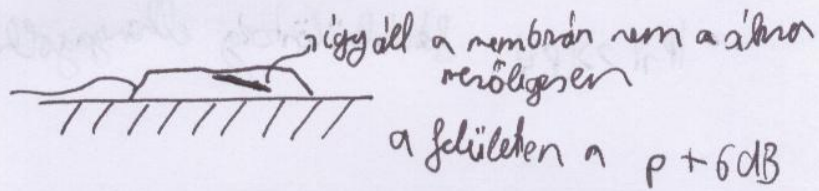 így áll a membrán nem a álma
merőlegesen
a felületen a p + 6dB